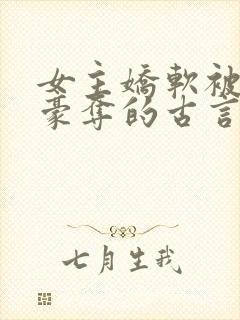 女主嬌軟被
豪奪的古言
七月生我